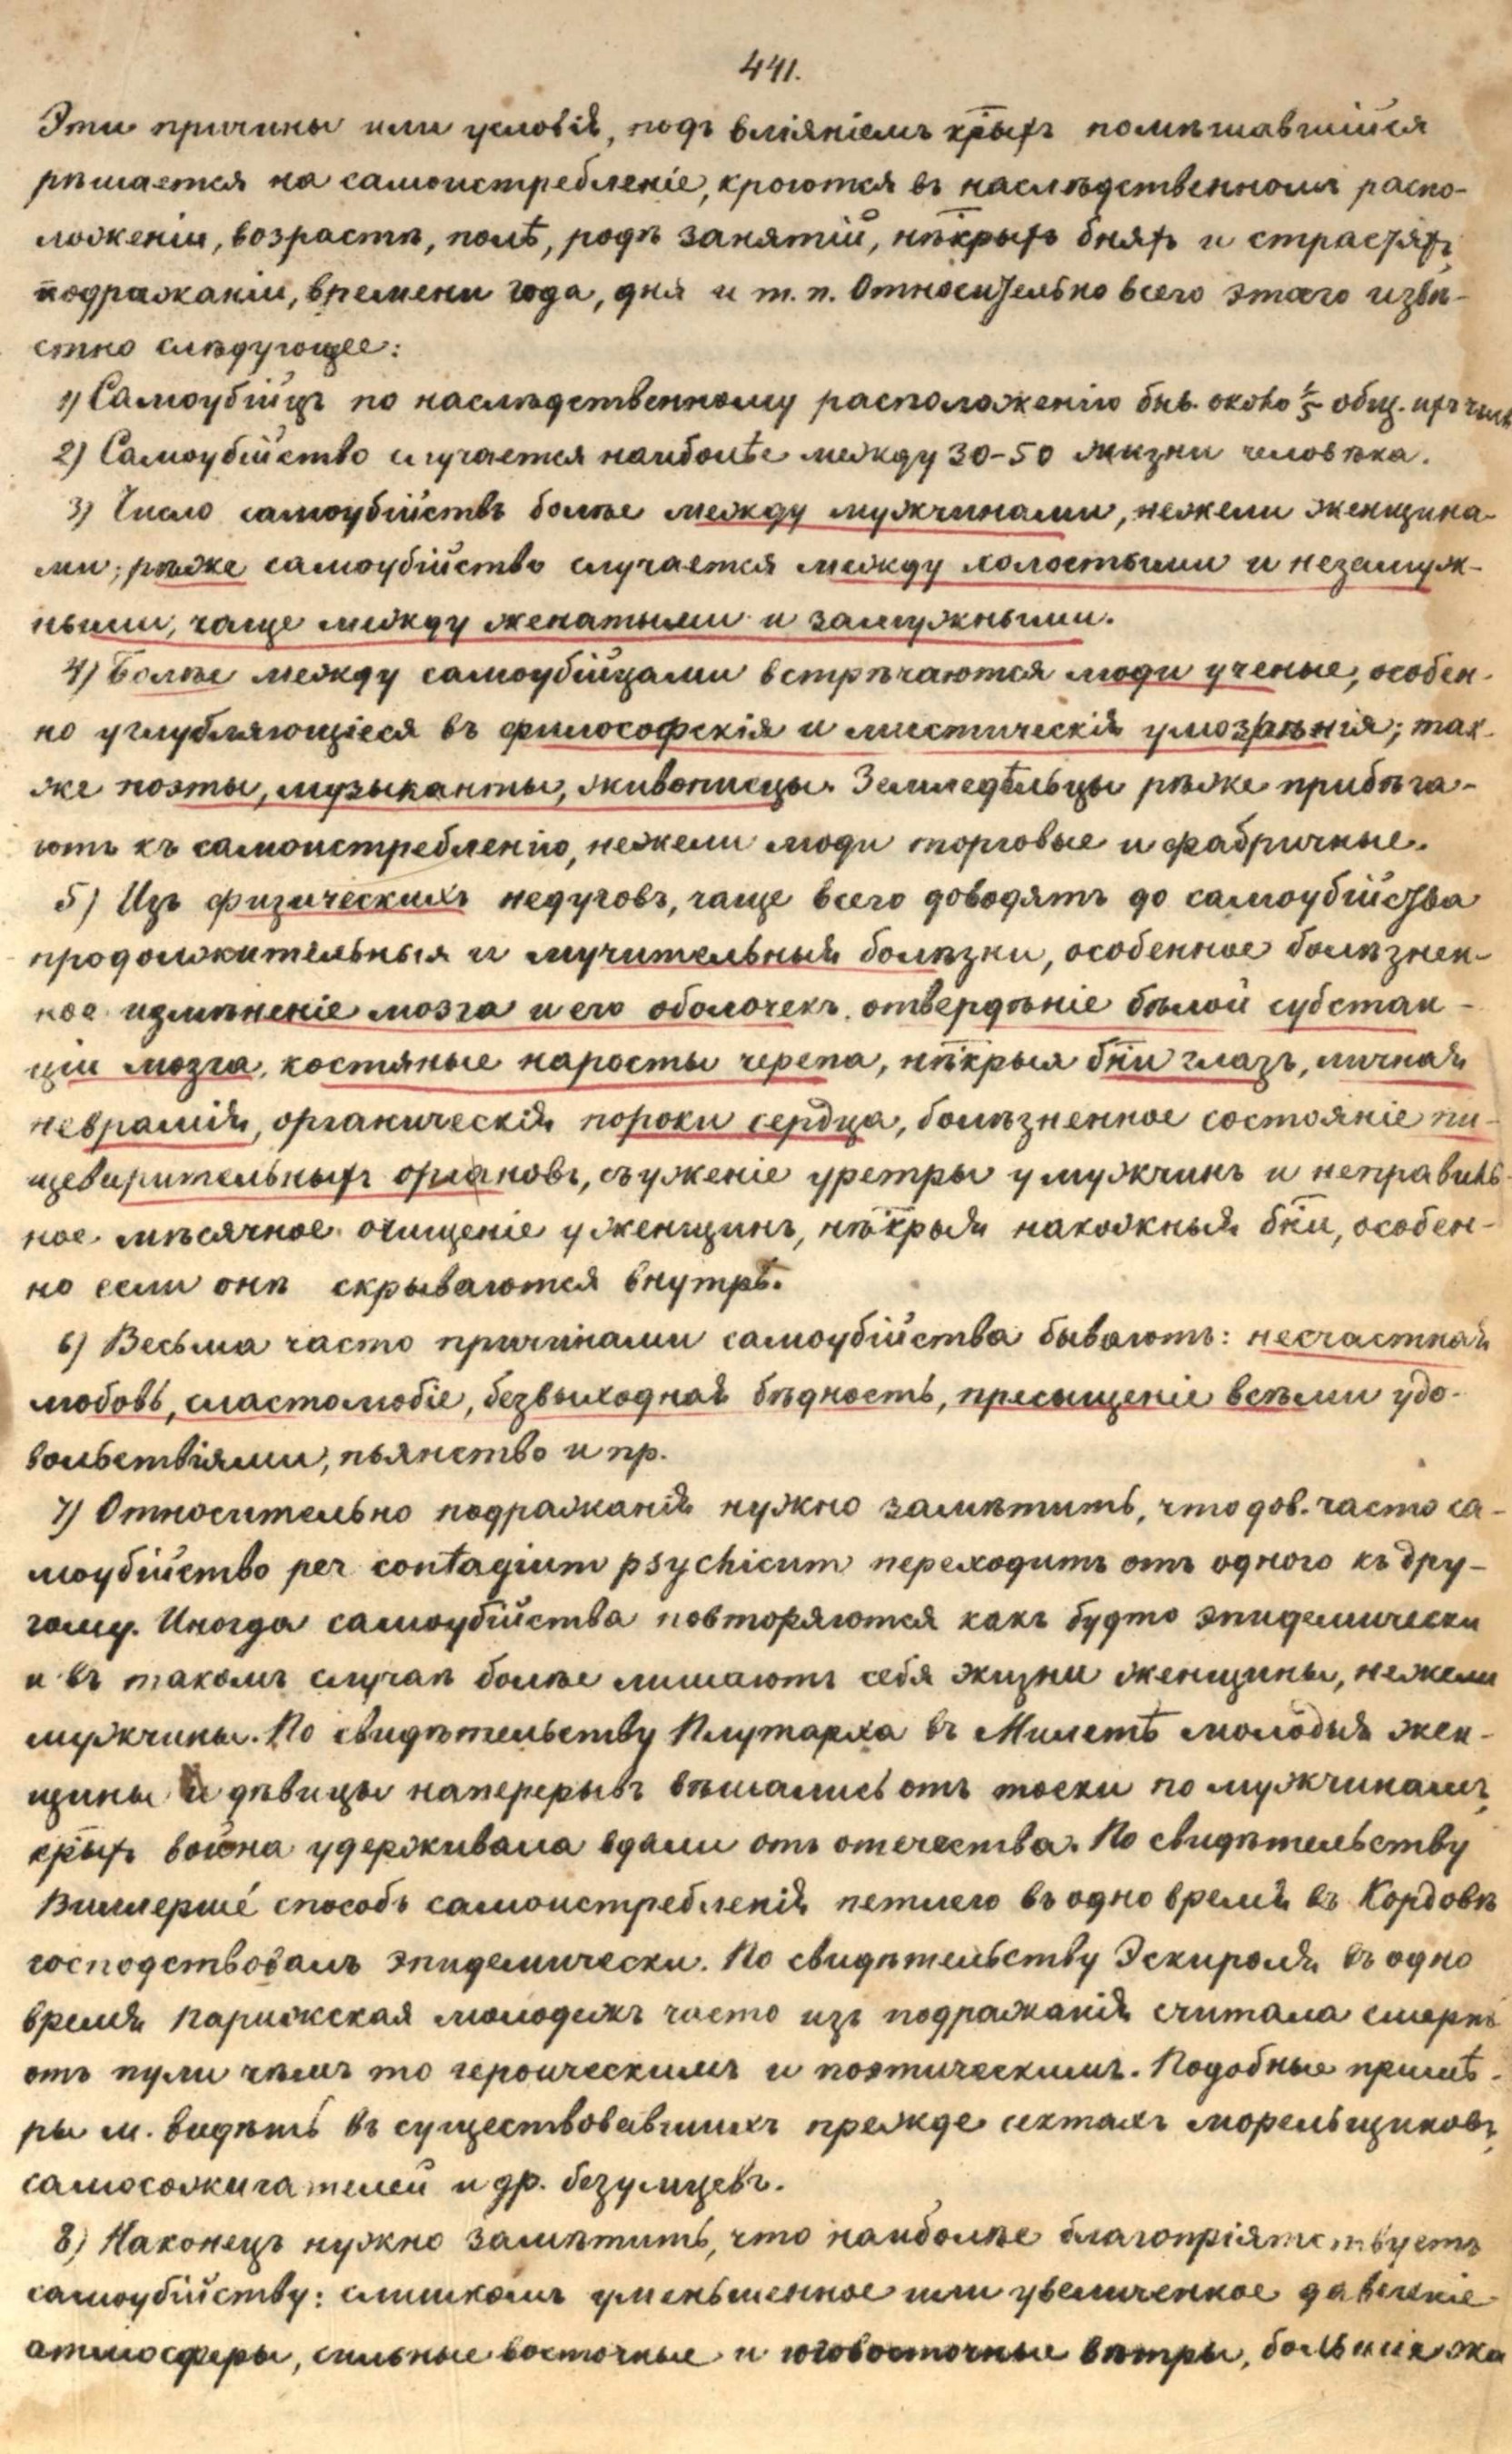 441.
Эти причины или условія, подъ вліяніемъ крыхъ помѣшавшійся
рѣшается на самоистребленіе, кроются въ наслѣдственномъ распо-
ложеніи, возрастѣ, полѣ, родѣ занятій, нѣкрыхъ бняхъ и страстяхъ,
подражаніи, времени года, дня и т. п. Относительно всего этого извѣ-
стно слѣдующее:
1) Самоубійцъ по наслѣдственному расположенію бнѣ. около 1/5 общ. ихъ числ.
2) Самоубійство случается наиболѣе между 30-50 жизни человѣка.
3) Число самоубійствъ болѣе между мужчинами, нежели женщина-
ми; рѣже самоубійство случается между холостыми и незамуж-
ными, чаще между женатыми и замужными.
4) Болѣе между самоубійцами встрѣчаются люди ученые, особен-
но углубляющіеся въ философскія и мистическія умозрѣнія; так-
же поэты, музыканты, живописцы. Земледѣльцы рѣже прибѣга-
ютъ къ самоистребленію, нежели люди торговые и фабричные.
5) Изъ физическихъ недуговъ, чаще всего доводятъ до самоубійства
продолжительныя и мучительныя болѣзни, особенное болѣзнен-
ное измѣненіе мозга и его оболочекъ, отвердѣніе бѣлой субстан-
ціи мозга, костяные наросты черепа, нѣкрыя бни глазъ, личная
невралгія, органическія пороки сердца, болѣзненное состояніе пи-
щеварительныхъ органовъ, съуженіе уретры у мужчинъ и неправиль-
ное мѣсячное очищеніе у женщинъ, нѣкрыя накожныя бни, особен-
но если онѣ скрываются внутрь.
6) Весьма часто причинами самоубійства бываютъ: несчастная
любовь, сластолюбіе, безвыходная бѣдность, пресыщеніе всѣми удо-
вольствіями, пьянство и пр.
7) Относительно подражанія нужно замѣтить, что дов. часто са-
моубійство per contagium psychicum переходитъ отъ одного къ дру-
гому. Иногда самоубійства повторяются какъ будто эпидемически
и въ такомъ случаѣ болѣе лишаютъ себя жизни женщины, нежели
мужчины. По свидѣтельству Плутарха въ Милетѣ молодыя жен-
щины и дѣвицы наперерывъ вѣшались отъ тоски по мужчинамъ,
крыхъ война удерживала вдали отъ отечества. По свидѣтельству
Виллерше́ способъ самоистребленія петлею въ одно время въ Кордовѣ
господствовалъ эпидемически. По свидѣтельству Эскироля въ одно
время парижская молодежъ часто изъ подражанія считала смерть
отъ пули чѣмъ то героическимъ и поэтическимъ. Подобные примѣ-
ры м. видѣть въ существовавшихъ прежде сектахъ морельщиковъ,
самосожигателей и др. безумцевъ.
8) Наконецъ нужно замѣтить, что наиболѣе благопріятствуетъ
самоубійству: слишкомъ уменьшенное или увеличенное давленіе
атмосферы, сильные восточные и юговосточные вѣтры, большіе жа